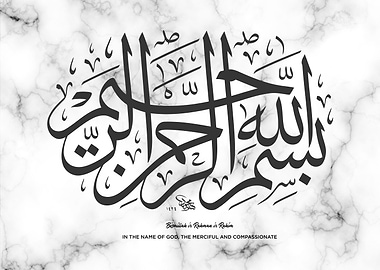 بسم الله الرحمن الرحيم
Bismillah ir Rahman ir Rahim
IN THE NAME OF GOD, THE MERCIFUL AND COMPASSIONATE